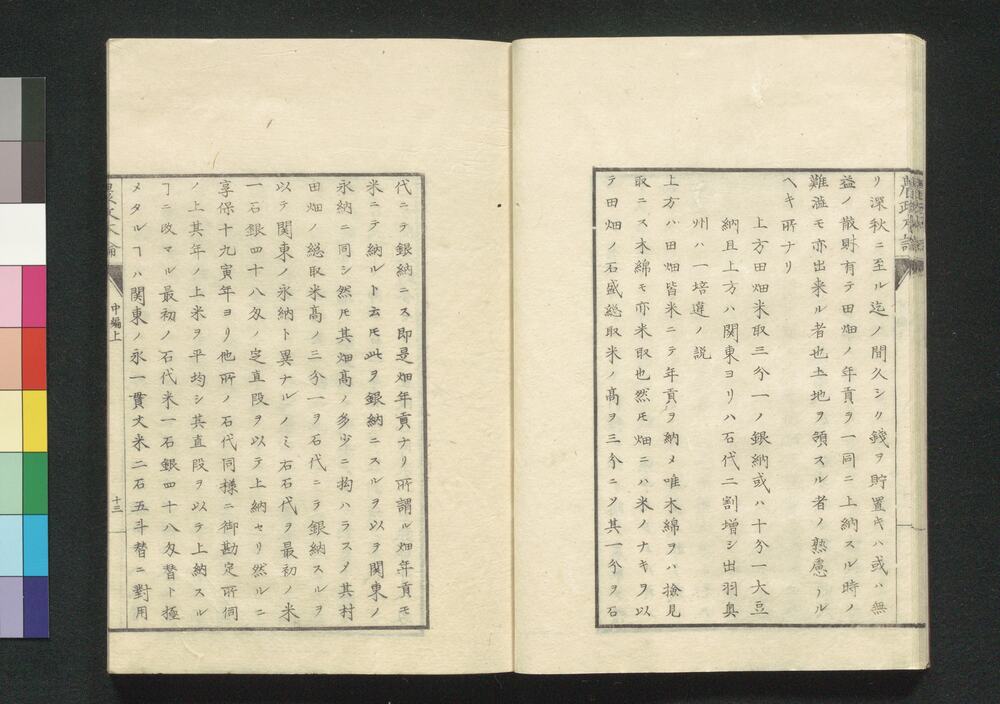 リ深秋ニ至ル迄ノ間久シク錢ヲ貯置キハ或ハ無
益ノ散財有テ田畑ノ年貢ヲ一同ニ上納スル時ノ
難澁モ亦出来ル者也土地ヲ領スル者ノ熟慮アル
ヘキ所ナリ
上方田畑米取三分一ノ銀納或ハ十分一大豆
納且上方ハ関東ヨリハ石代二割増シ出羽奥
州ハ一培違ノ説
上方ハ田畑皆米ニテ年貢ヲ納メ唯木綿ヲハ撿見
取ニス木綿モ亦米取也然モ畑ニハ米ノナキヲ以
テ田畑ノ石盛総取米ノ高ヲ三分ニシ其一分ヲ石
代ニテ銀納ニス即是畑年貢ナリ所謂ル畑年貢モ
米ニテ納ルト云モ此ヲ銀納ニスルヲ以ヲ関東ノ
永納ニ同シ然モ其畑高ノ多少ニ拘ハラス〆其村
田畑ノ総取米高ノ三分一ヲ石代ニテ銀納スルヲ
以テ関東ノ永納ト異ナルノミ右石代ヲ最初ノ米
一石銀四十八匁ノ定直段ヲ以テ上納セリ然ルニ
享保十九寅年ヨリ他所ノ石代同様ニ御勘定所伺
ノ上其年ノ上米ヲ平均シ其直段ヲ以テ上納スル
ヿニ改マル最初ノ石代米一石銀四十八匁替ト極
メタルヿハ関東ノ永一貫文米二石五斗替ニ對用
中編上
十三